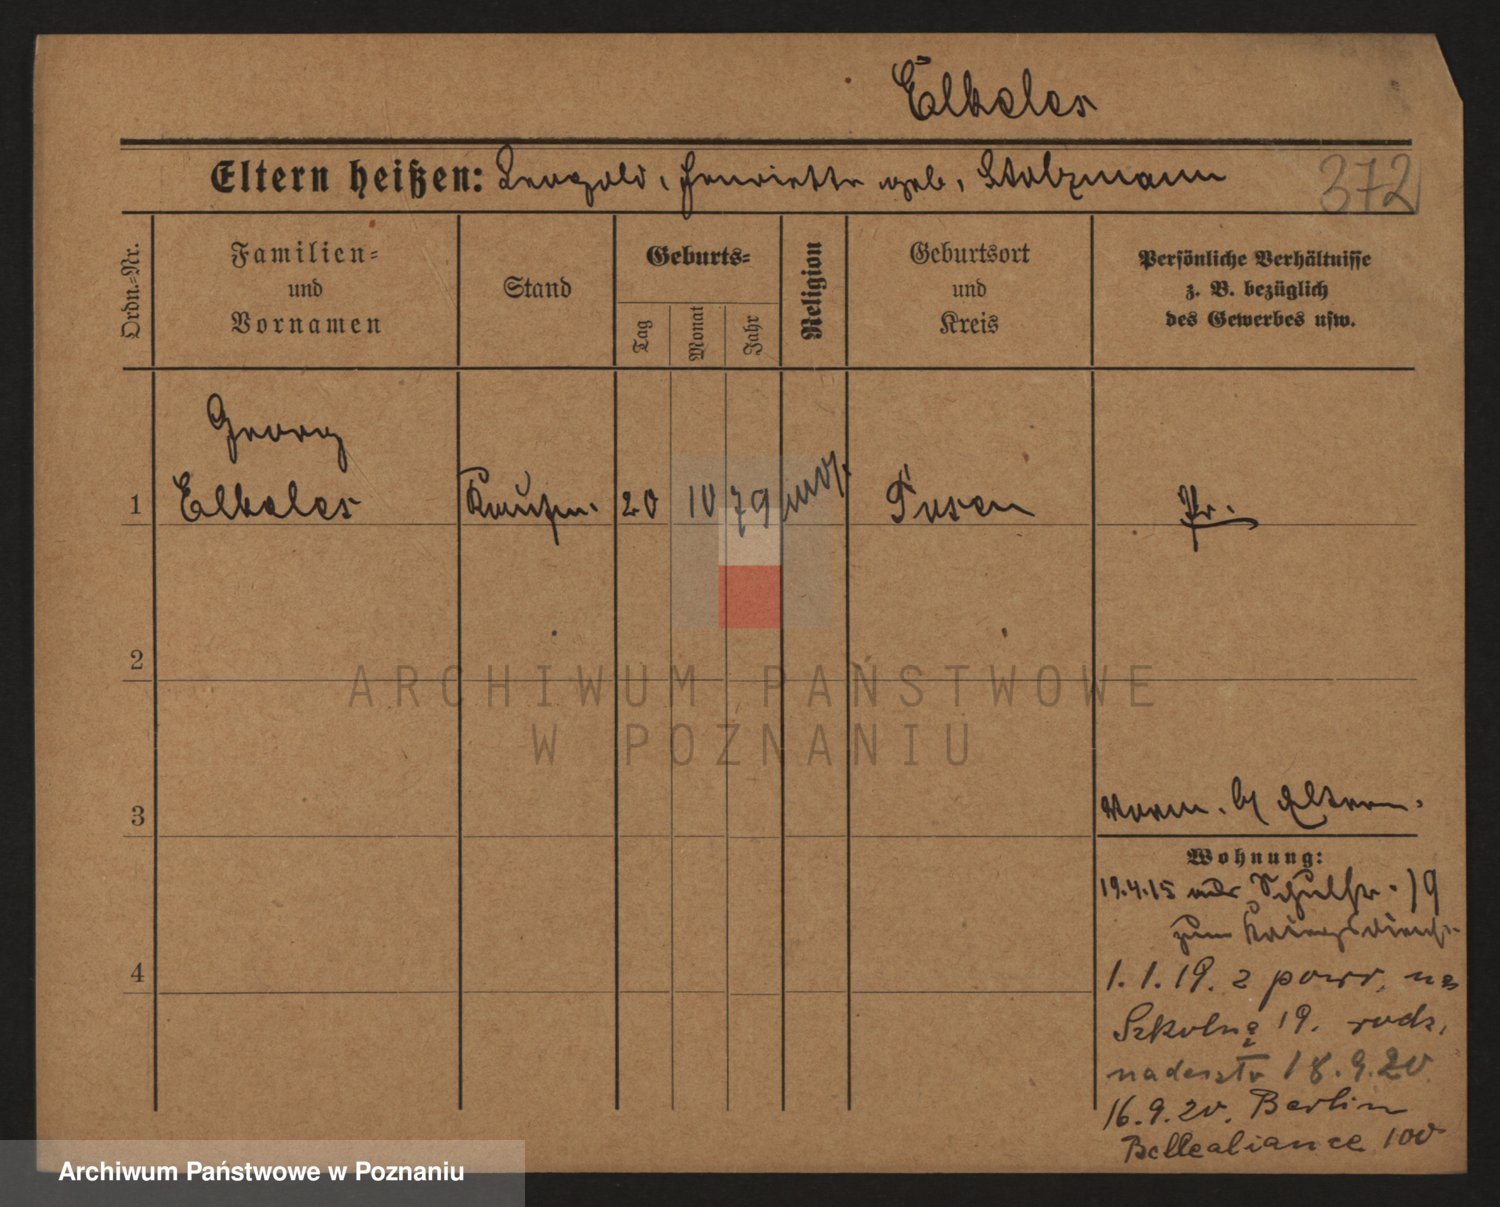 Elkeles
Eltern heißen: Leopold, Henriette geb. Stolzmann
372
Ordn.-Nr.
Familien- und Vornamen
Stand
Geburts-
Tag
Monat
Jahr
Religion
Geburtsort und Kreis
Persönliche Verhältnisse
z. B. bezüglich
des Gewerbes usw.
Georg
1 Elkeles Kaufm. 20 10 79 mos. Posen Pr.
2
3
4
Eltern.
Wohnung:
19.4.15 Schulstr. 19
zum Kriegsdienst
1.1.19. z powr. na
Szkolną 19. rodz.
nadeszła 18.9.20
16.9.20. Berlin
Bellealiance 100
ARCHIWUM PAŃSTWOWE
W POZNANIU
Archiwum Państwowe w Poznaniu